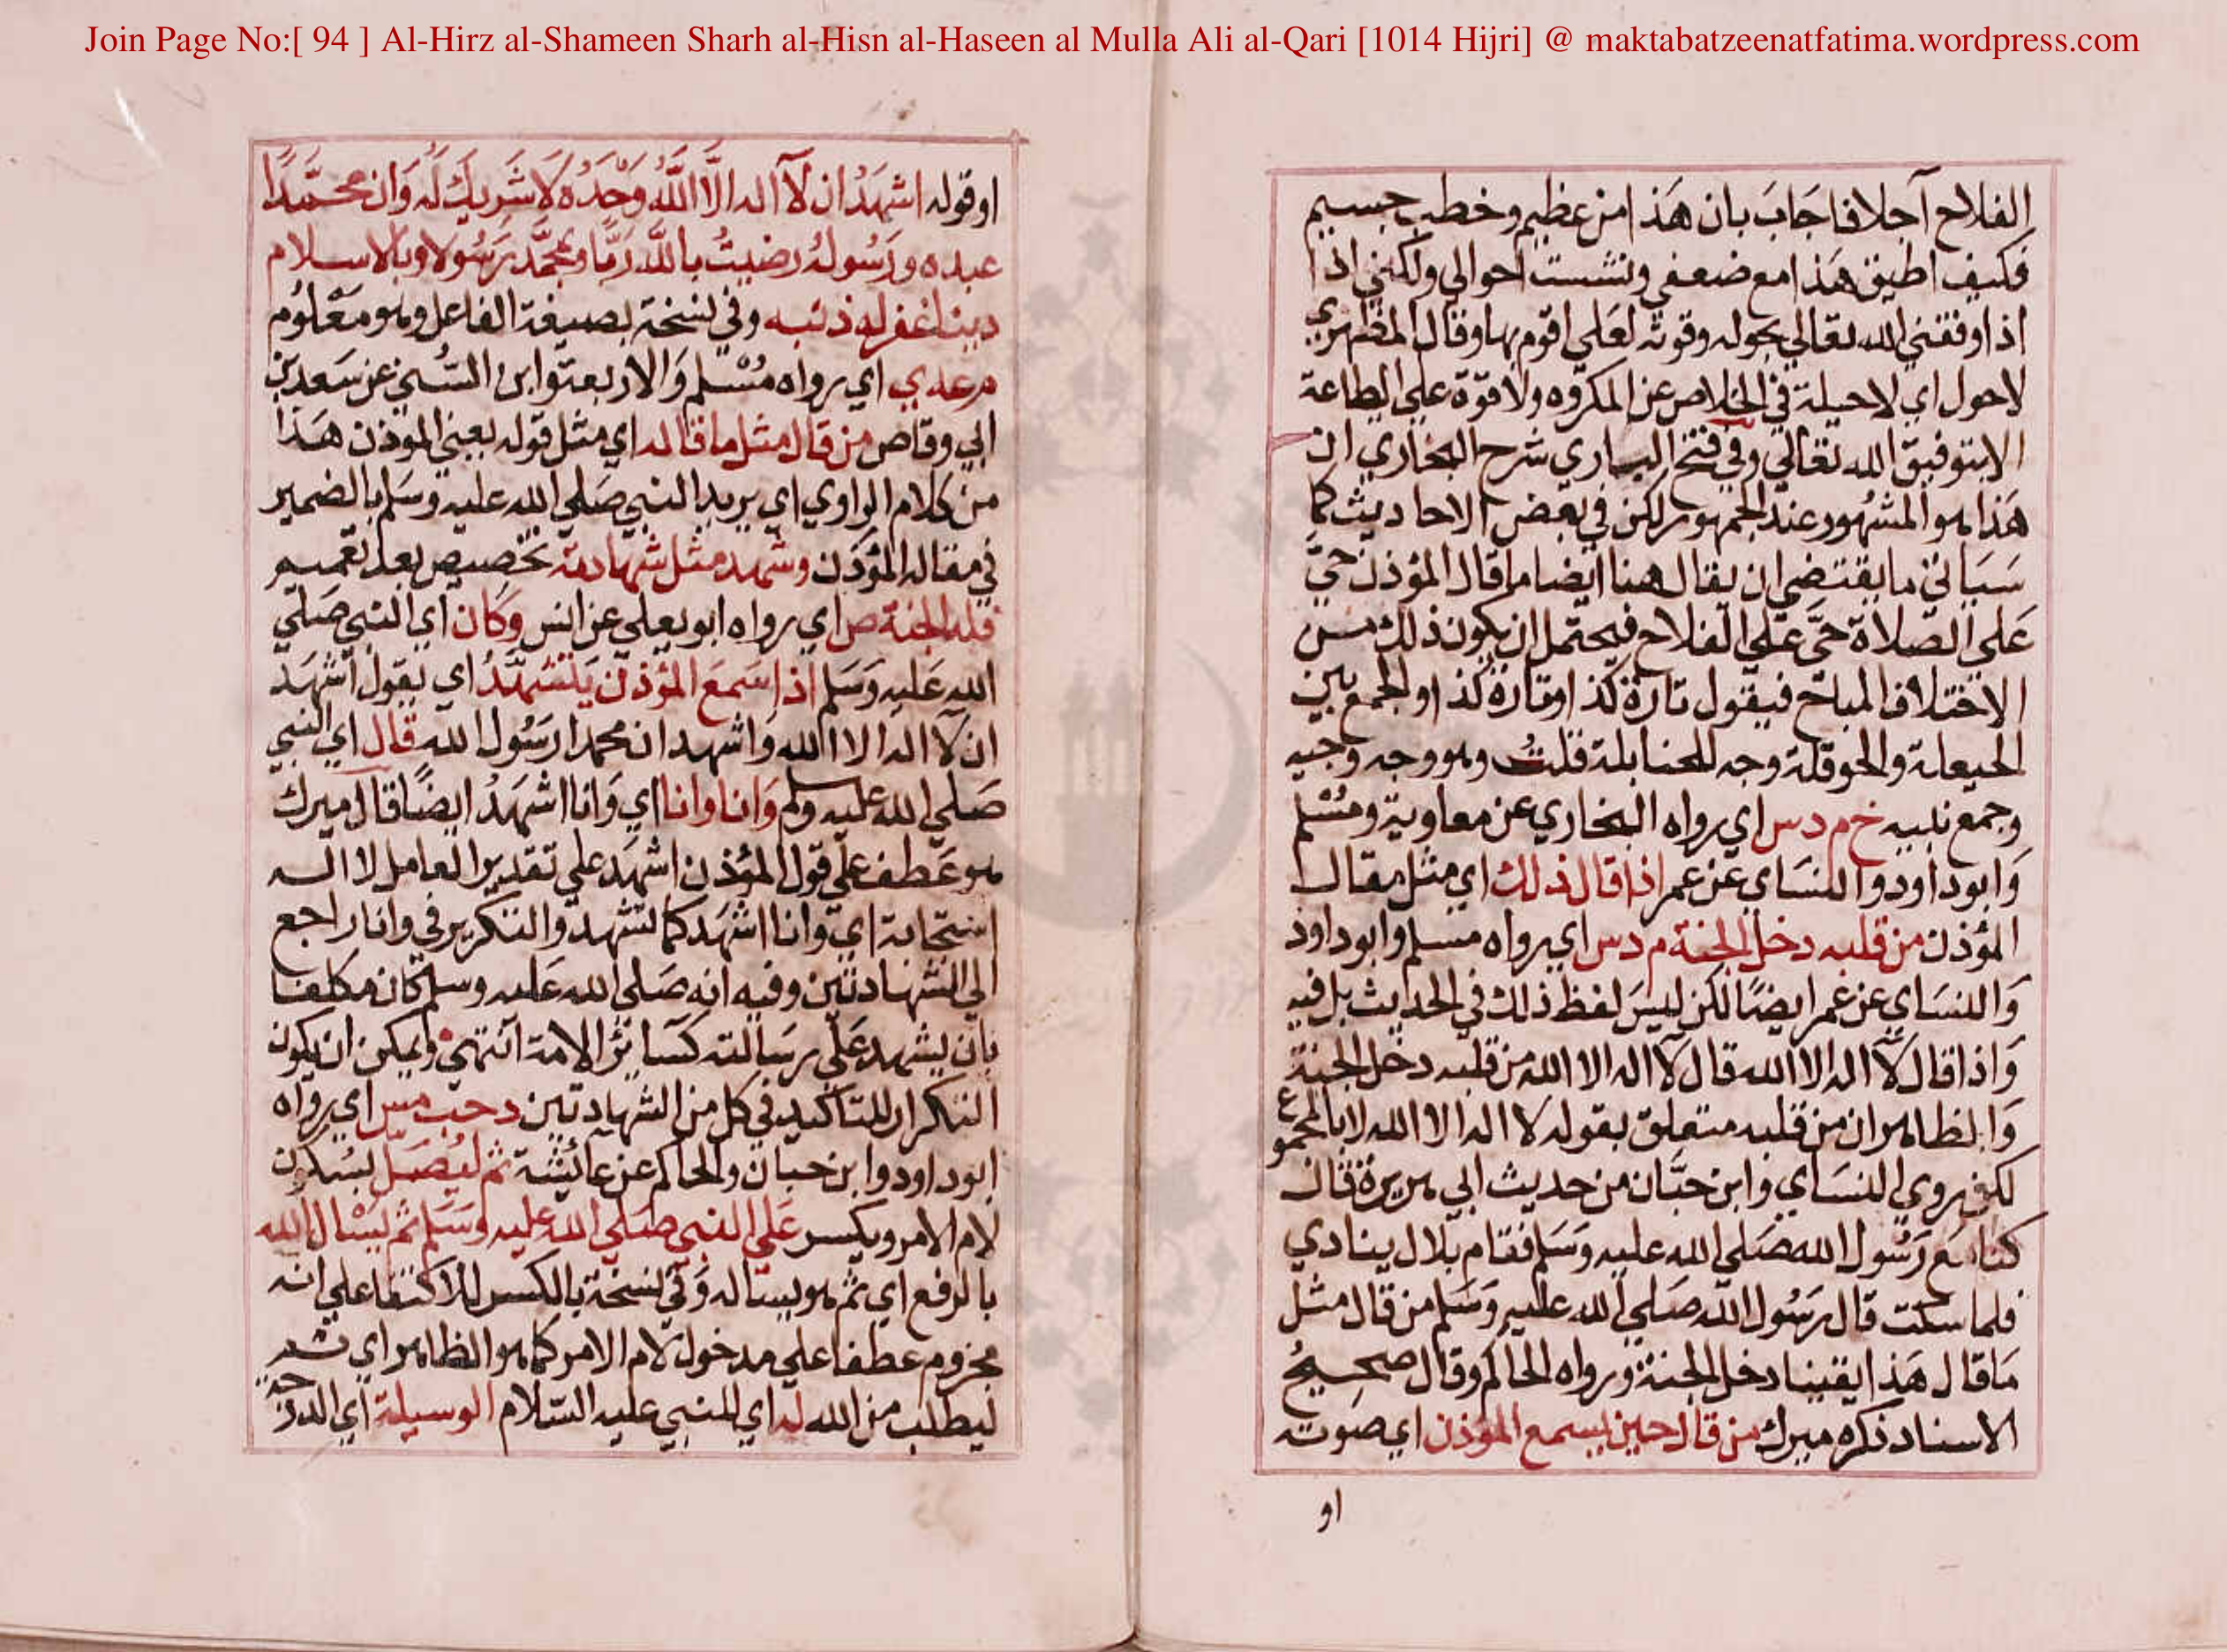 Join Page No:[ 94 ] Al-Hirz al-Shameen Sharh al-Hisn al-Haseen al Mulla Ali al-Qari [1014 Hijri] @ maktabatzeenatfatima.wordpress.com
الفلاح آجلا فاجاب بان هذا امر عظيم وخطب جسيم
فكيف اطيق هذا مع ضعفي وتشتت احوالي ولكني اذا
اذا وفقني الله تعالي بحوله وقوته لعلي اقوم بها وقال المظهري
لاحول اي لاحيلة في الخلاص عن المكروه ولا قوة علي الطاعة
الا بتوفيق الله تعالي وفي فتح الباري شرح البخاري ان
هذا هو المشهور عند الجمهور لكن في بعض الاحاديث كما
سياتي ما يقتضي ان يقال هنا ايضا ما قال المؤذن حي
علي الصلاة حي علي الفلاح فيحتمل ان يكون ذلك من
الاختلاف المباح فيقول تارة كذا وتارة كذا والجمع بين
الحيعلة والحوقلة وجه للحنابلة قلت وهو وجه وجيه
وجمع نبيه خ م د س اي رواه البخاري عن معاوية ومسلم
وابو داود والنساي عن عمر اذا قال ذلك اي مثل مقال
المؤذن من قلبه دخل الجنة م د س اي رواه مسلم وابو داود
والنساي عن عمر ايضا لكن ليس لفظ ذلك في الحديث بل فيه
واذا قال لا اله الا الله قال لا اله الا الله من قلبه دخل الجنة
والظاهر ان من قلبه متعلق بقوله لا اله الا الله لا بالمجموع
لكن روي النساي وابن حبان من حديث ابي هريرة قال
كنا مع رسول الله صلي الله عليه وسلم فقام بلال ينادي
فلما سكت قال رسول الله صلي الله عليه وسلم من قال مثل
ما قال هذا يقينا دخل الجنة ورواه الحاكم وقال صحيح
الاسناد ذكره ميرك من قال حين يسمع المؤذن اي صوته
او
او قوله اشهد ان لا اله الا الله وحده لا شريك له وان محمدا
عبده ورسوله رضيت بالله ربا وبمحمد رسولا وبالاسلام
دينا غفر له ذنبه وفي نسخة بصيغة الفاعل وهو معلوم
م عه ي اي رواه مسلم والاربعة وابن السني عن سعد بن
ابي وقاص من قال مثل ما قاله اي مثل قوله يعني الموذن هذا
من كلام الراوي اي يريد النبي صلي الله عليه وسلم بالضمير
في مقاله المؤذن وشهد مثل شهادته تخصيص بعد تعميم
فله الجنة ص اي رواه ابو يعلي عن انس وكان اي النبي صلي
الله عليه وسلم اذا سمع المؤذن يتشهد اي يقول اشهد
ان لا اله الا الله واشهد ان محمدا رسول الله قال اي النبي
صلي الله عليه وسلم وانا وانا اي وانا اشهد ايضا قال ميرك
هو عطف علي قول المؤذن اشهد علي تقدير العامل لا اله
اي وانا اشهد كما تشهد والتكرير في وانا راجع
الي الشهادتين وفيه انه صلي الله عليه وسلم كان مكلفا
بان يشهد علي رسالته كسائر الامة انتهي ويمكن ان يكون
التكرار للتاكيد في كل من الشهادتين د حب مس اي رواه
ابو داود وابن حبان والحاكم عن عائشة ثم ليصل بسكون
لام الامر ويكسر علي النبي صلي الله عليه وسلم ثم يسال الله
بالرفع اي ثم هو يساله وفي نسخة بالكسر للاكتفا علي انه
مجزوم عطفا علي مدخول لام الامر كما هو الظاهر اي ثم
ليطلب من الله له اي للنبي عليه السلام الوسيلة اي الدرجة